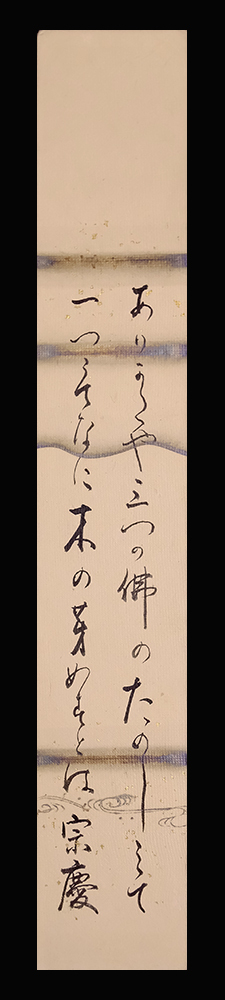 ありかたや三つの佛のたのしみて
一つうてなに木の芽めすとは
宗慶